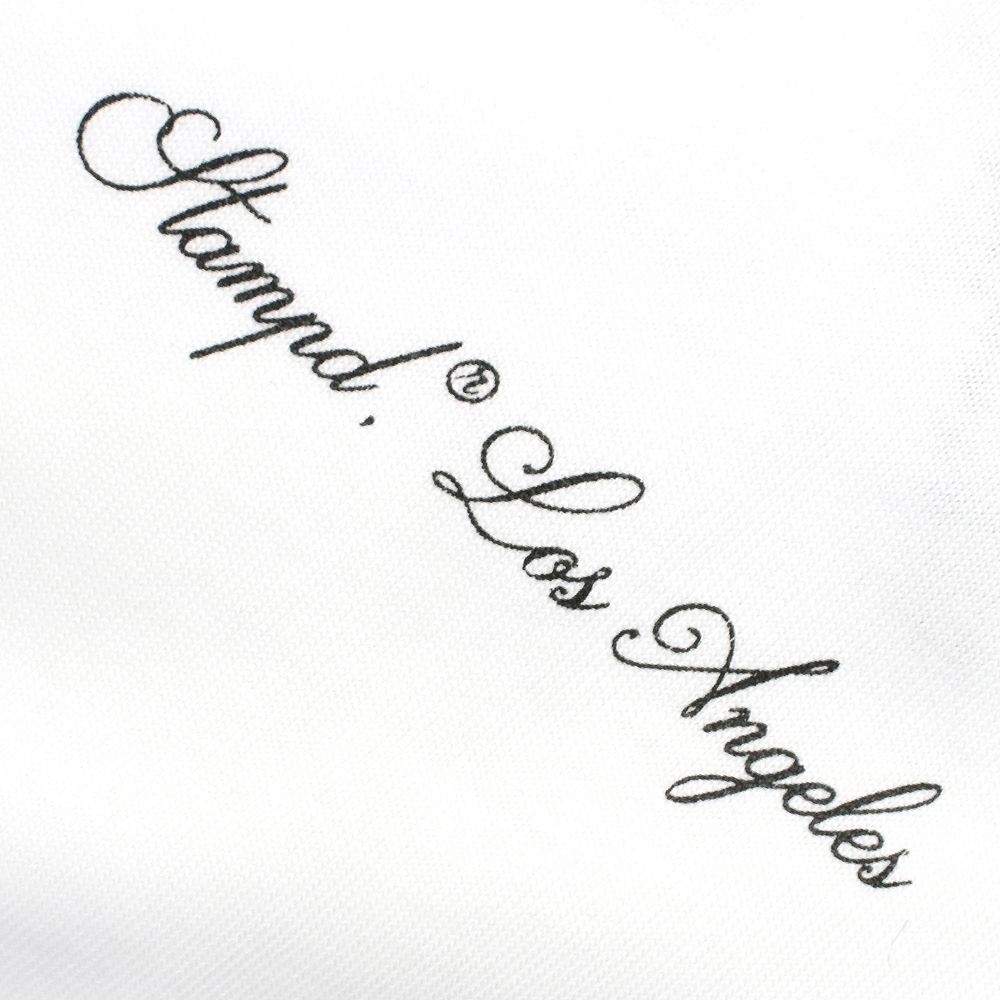 Stampd.® Los Angeles